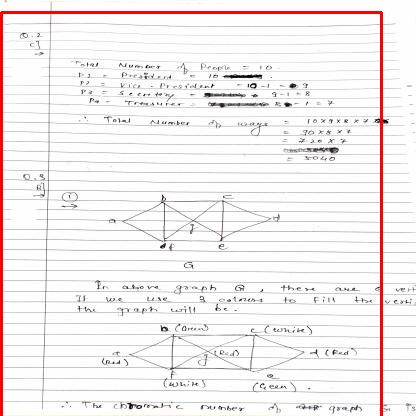 Q.2
C]
Total Number of People = 10
P1 = President = 10
P2 = Vice-President = 10-1 = 9
P3 = Secretary = 9-1 = 8
P4 = Treasurer = 8-1 = 7
∴ Total Number of ways = 10×9×8×7
= 90×8×7
= 720×7
= 5040
Q.3
B]
①
b c
a g d
f e
G
In above graph G, there are 6 verti
If we use 3 colours to fill the verti
the graph will be.
b (Green) c (White)
a (Red) g (Red) d (Red)
f (White) e (Green).
∴ The chromatic number of graph is